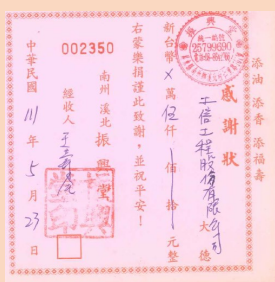 添油 添香 添福壽
統一編號
25799690
感謝狀
工程股份有限公司 大德
新台幣 X 萬 伍 仟 佰 拾 元整
右蒙樂捐謹此致謝，並祝平安！
南州溪北 振興堂
002350
經收人 王
中華民國 111 年 5 月 23 日